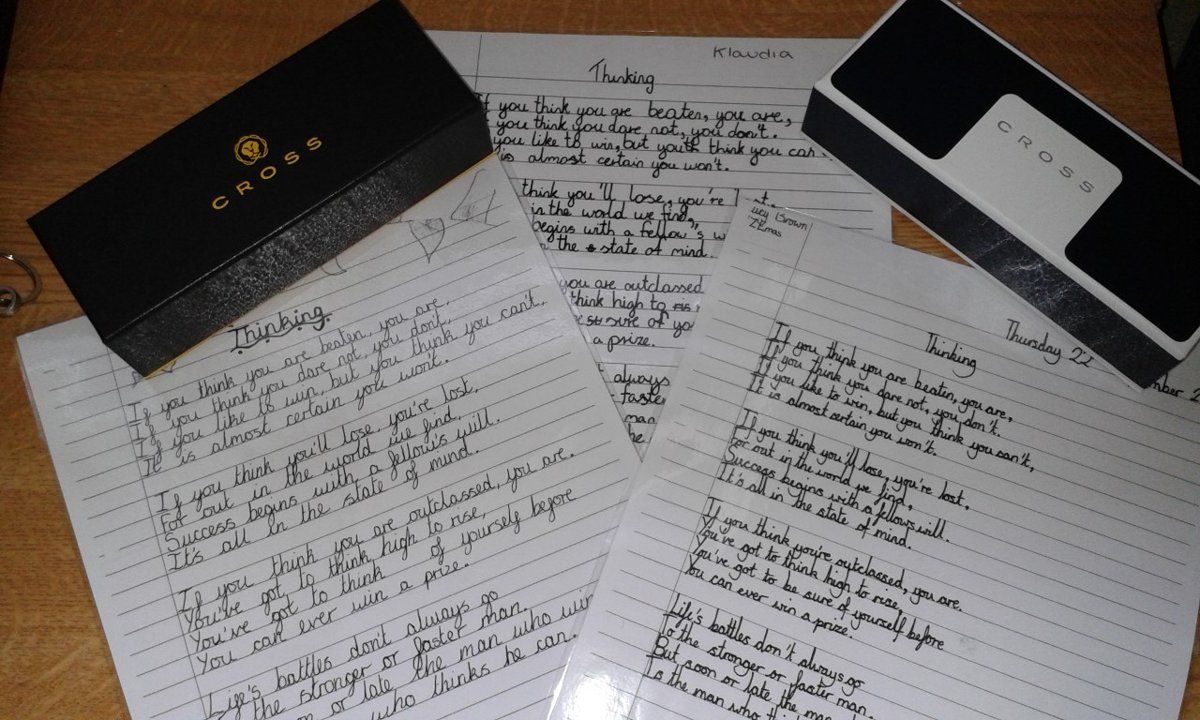 CROSS
CROSS
Klaudia
Thinking
If you think you are beaten, you are,
you think you dare not, you don't.
you like to win, but you think you can
is almost certain you won't.
think you'll lose, you're
in the world we find,
begins with a fellow's
the state of mind.
you are outclassed
think high to
sure of
a prize.
always
faster
man
Thinking
If you think you are beaten, you are,
If you think you dare not, you don't,
If you like to win, but you think you can't,
It is almost certain you won't.
If you think you'll lose, you're lost,
For out in the world we find,
Success begins with a fellow's will.
It's all in the state of mind.
If you think you are outclassed, you are.
You've got to think high to rise,
You've got to think of yourself before
You can ever win a prize.
Life's battles don't always go
the stronger or faster man.
or late the man who win
who thinks he can.
Brown
Thursday 22
Thinking
If you think you are beaten, you are,
If you think you dare not, you don't.
If you like to win, but you think you can't,
It is almost certain you won't.
If you think you'll lose, you're lost,
For out in the world we find,
Success begins with a fellows will.
It's all in the state of mind.
If you think you're outclassed, you are.
You've got to think high to rise,
You've got to be sure of yourself before
You can ever win a prize.
Life's battles don't always go
To the stronger or faster man.
But soon or late the man
To the man who